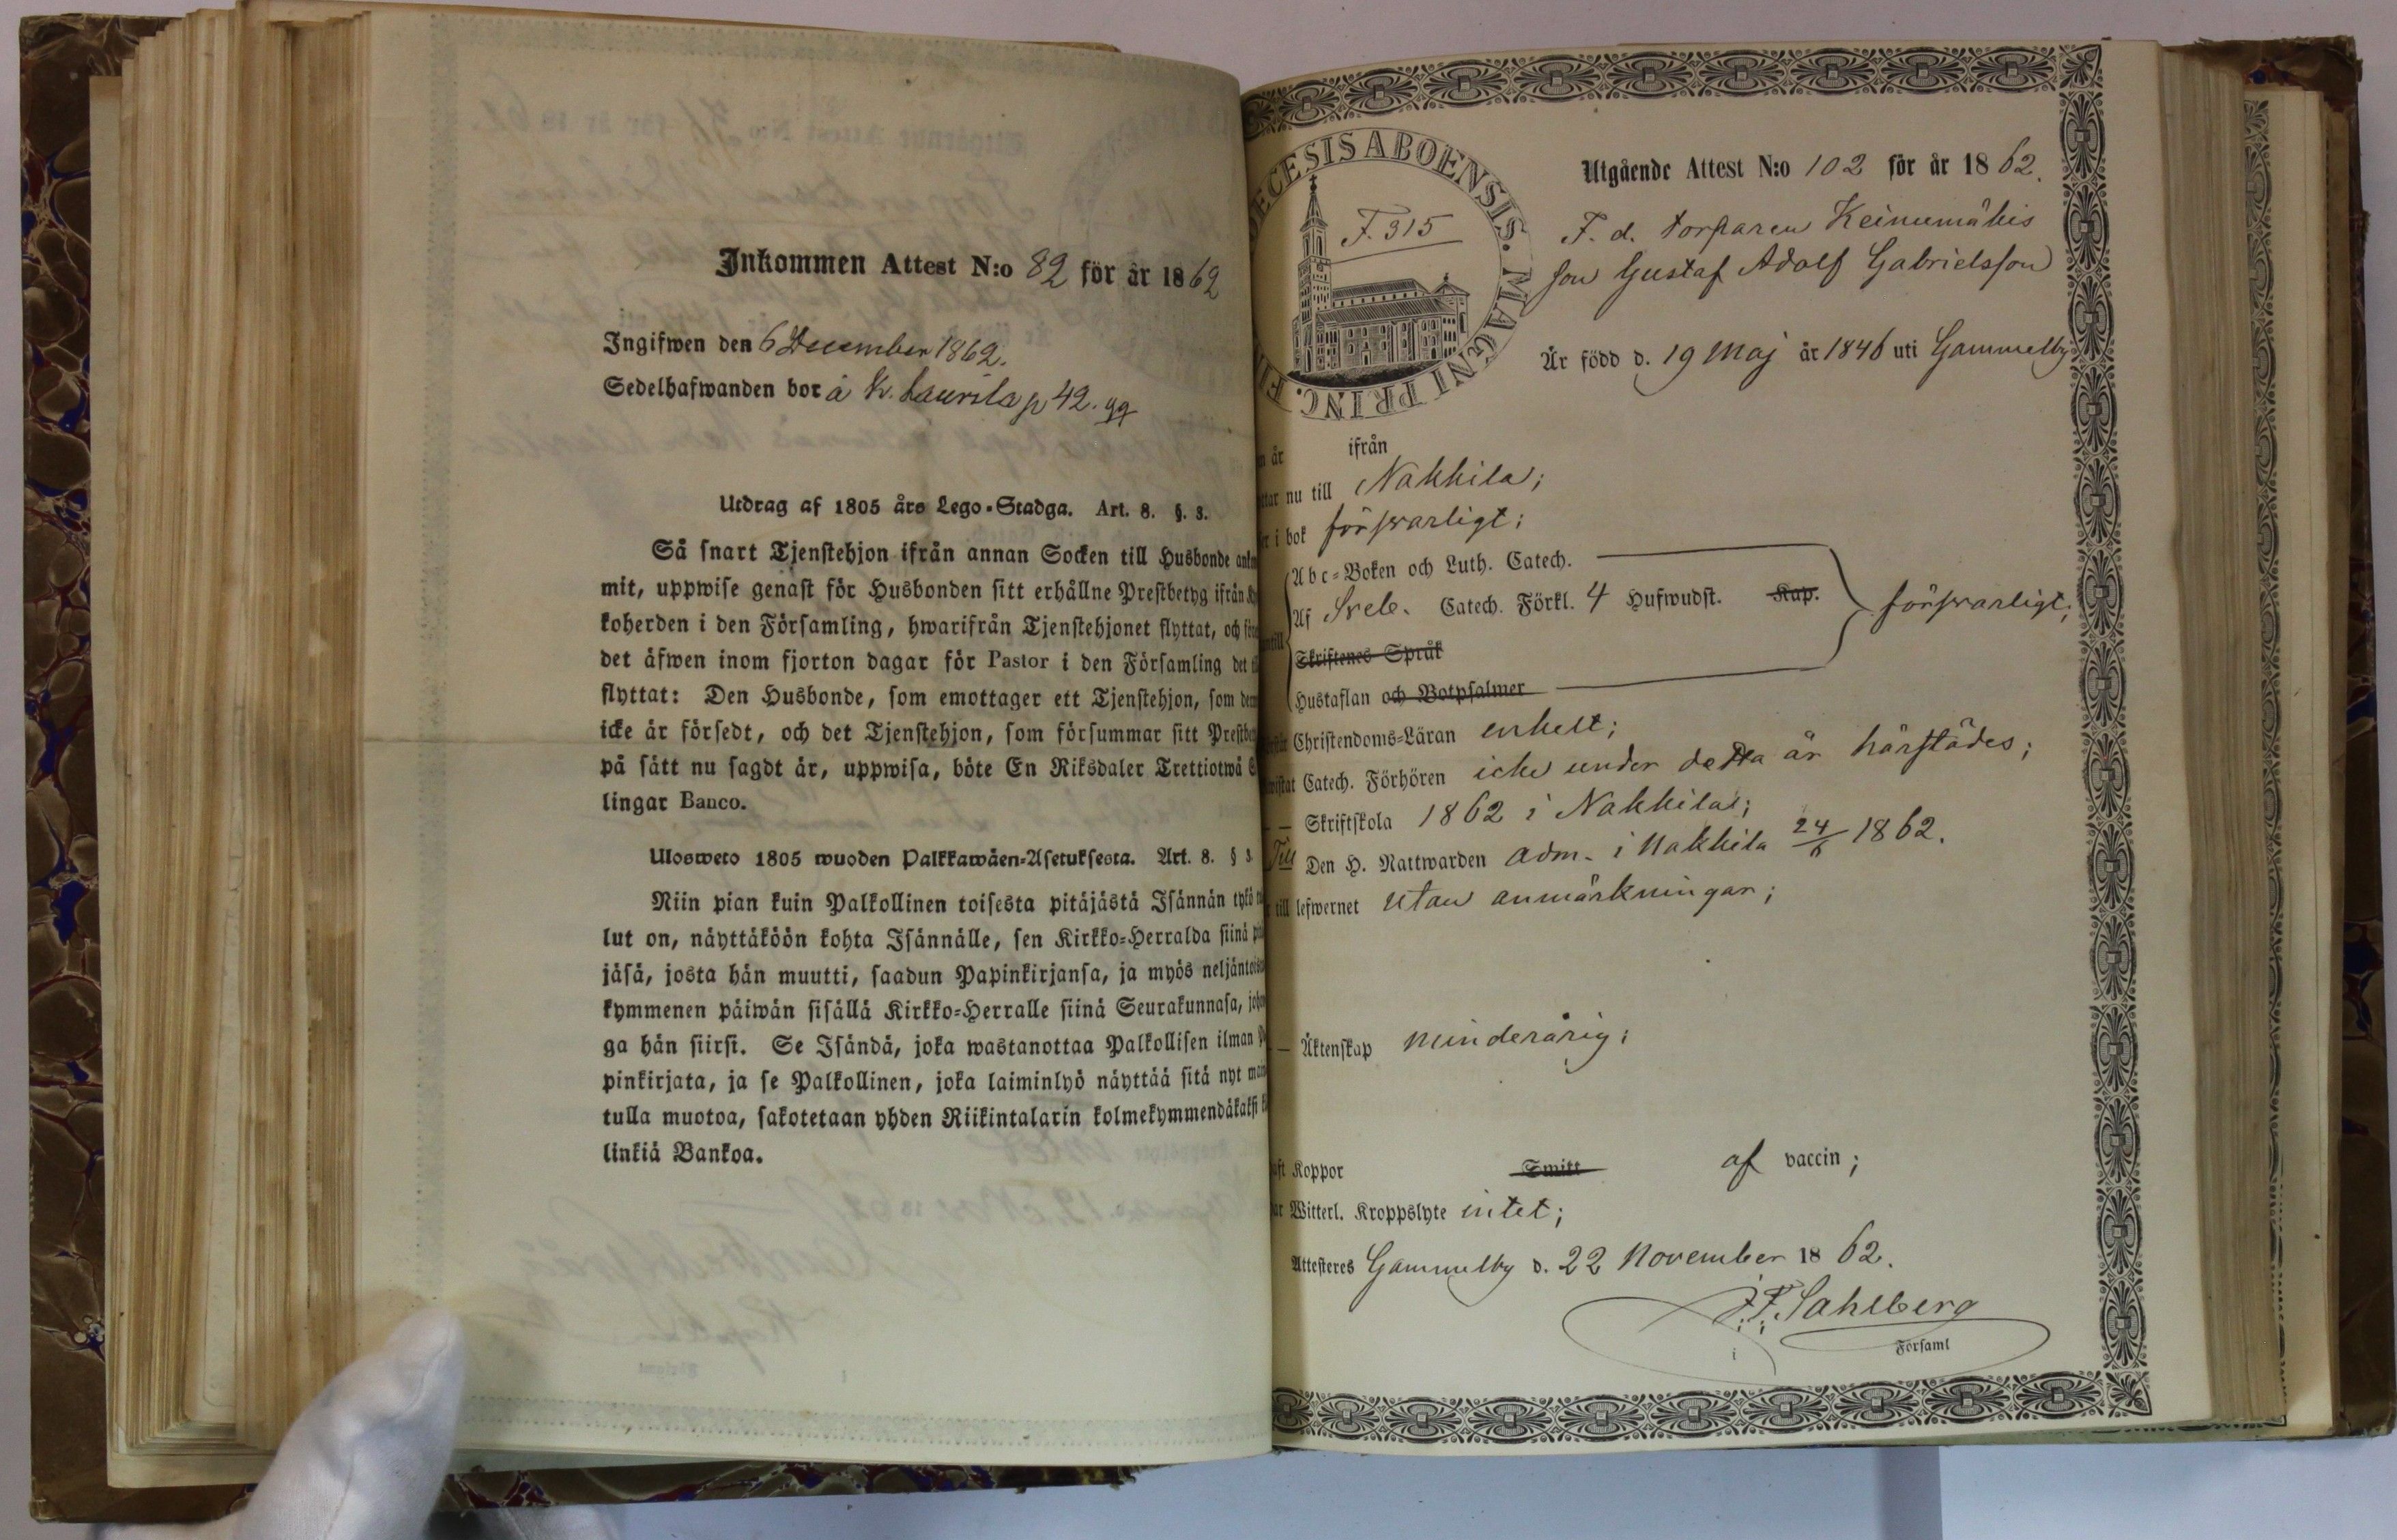 Inkommen Attest N:o 82 för år 1862
Ingifwen den 6 December 1862.
Sedelhafwanden bor å K. Laurila p 42.
Utdrag af 1805 års Lego-Stadga. Art. 8. §. 3.
Så snart Tjenstehjon ifrån annan Socken till Husbonde
mit, uppwise genast för Husbonden sitt erhållne Prestbetyg ifrån
koherden i den Församling, hwarifrån Tjenstehjonet flyttat, och
det äfwen inom fjorton dagar för Pastor i den Församling det
flyttat: Den Husbonde, som emottager ett Tjenstehjon, som
icke är försedt, och det Tjenstehjon, som försummar sitt
på sätt nu sagdt är, uppwisa, böte En Riksdaler Trettiotwå
lingar Banco.
Ulosweto 1805 wuoden Palkkawäen-Asetuksesta. Art. 8. § 3
Niin pian kuin Palkollinen toisesta pitäjästä Isännän tykö
lut on, näyttäköön kohta Isännälle, sen Kirkko-Herralda siinä
jäsä, josta hän muutti, saadun Papinkirjansa, ja myös
kymmenen päiwän sisällä Kirkko-Herralle siinä Seurakunnasa,
ga hän siirsi. Se Isändä, joka wastanottaa Palkollisen ilman
pinkirjata, ja se Palkollinen, joka laiminlyö näyttää sitä nyt
tulla muotoa, sakotetaan yhden Riikintalarin kolmekymmendäkaksi
linkiä Bankoa.
ECESIS ABOENSIS. MAGNI PRINC. FI
F. 315
Utgående Attest N:o 102 för år 1862.
F. d. torparen Keinumäkis
son Gustaf Adolf Gabrielsson
Är född d. 19 Maj år 1846 uti Gammelby
år ifrån
nu till Nakkila;
i bok försvarligt;
Abc-Boken och Luth. Catech.
Af Sveb. Catech. Förkl. 4 Hufwudst. Kap. försvarligt;
Skriftenes Språk
Hustaflan och Botpsalmer
Christendoms-Läran enkelt;
Catech. Förhören icke under detta år härstädes;
Skriftskola 1862 i Nakkila;
Till Den H. Nattwarden adm. i Nakkila 24/6 1862.
till lefwernet utan anmärkningar;
Äktenskap minderårig;
Koppor Smitt af vaccin;
Witterl. Kroppslyte intet;
Attesteras Gammelby d. 22 November 1862.
J. F. Sahlberg
i Församl